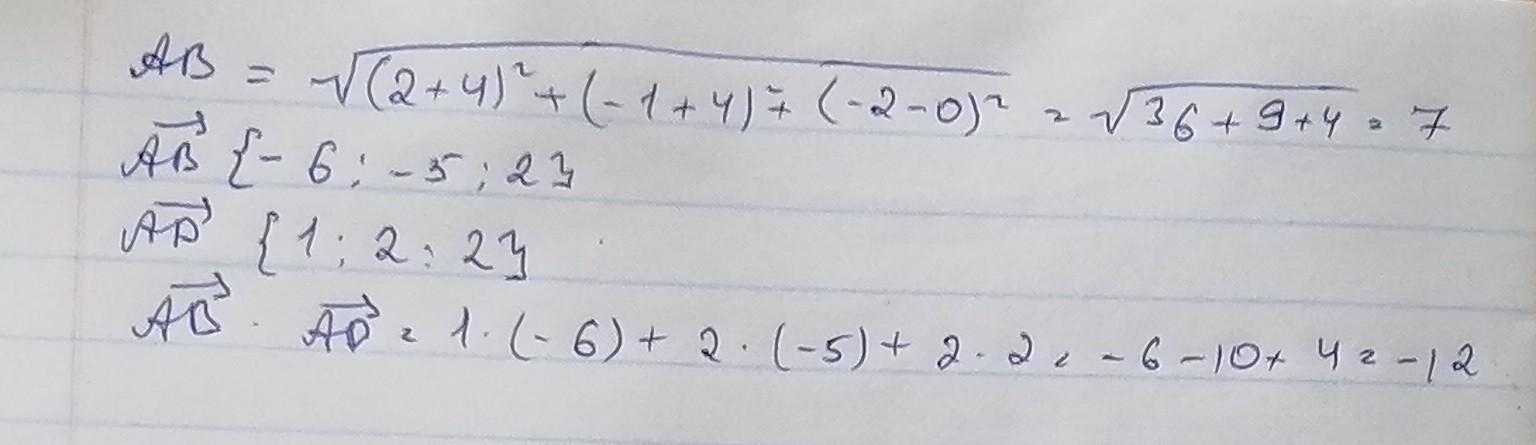 AB = √(2+4)² + (-1+4)² + (-2-0)² = √36+9+4 = 7
AB→ {-6; -5; 2}
AD→ {1; 2; 2}
AB→ · AD→ = 1·(-6) + 2·(-5) + 2·2 = -6-10+4 = -12